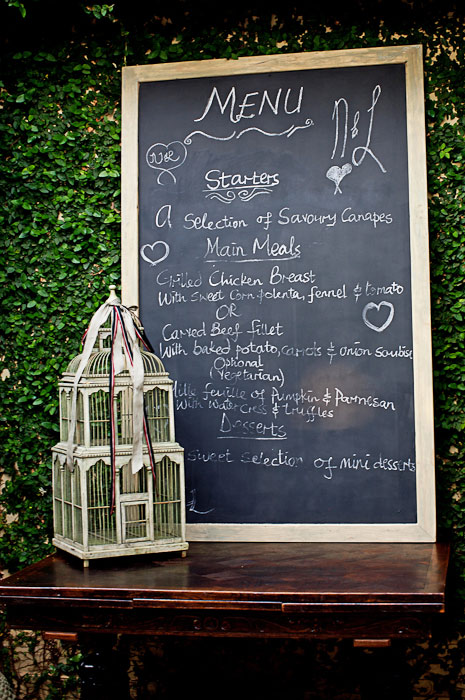 MENU
N & L
N&L
Starters
A Selection of Savoury Canapes
Main Meals
Grilled Chicken Breast
With Sweet Corn polenta, fennel & tomato
OR
Carved Beef fillet
With baked potato, carrots & onion soubise
Optional
(Vegetarian)
Mille feuille of Pumpkin & Parmesan
With Watercress & truffles
Desserts
Sweet Selection of mini desserts
L